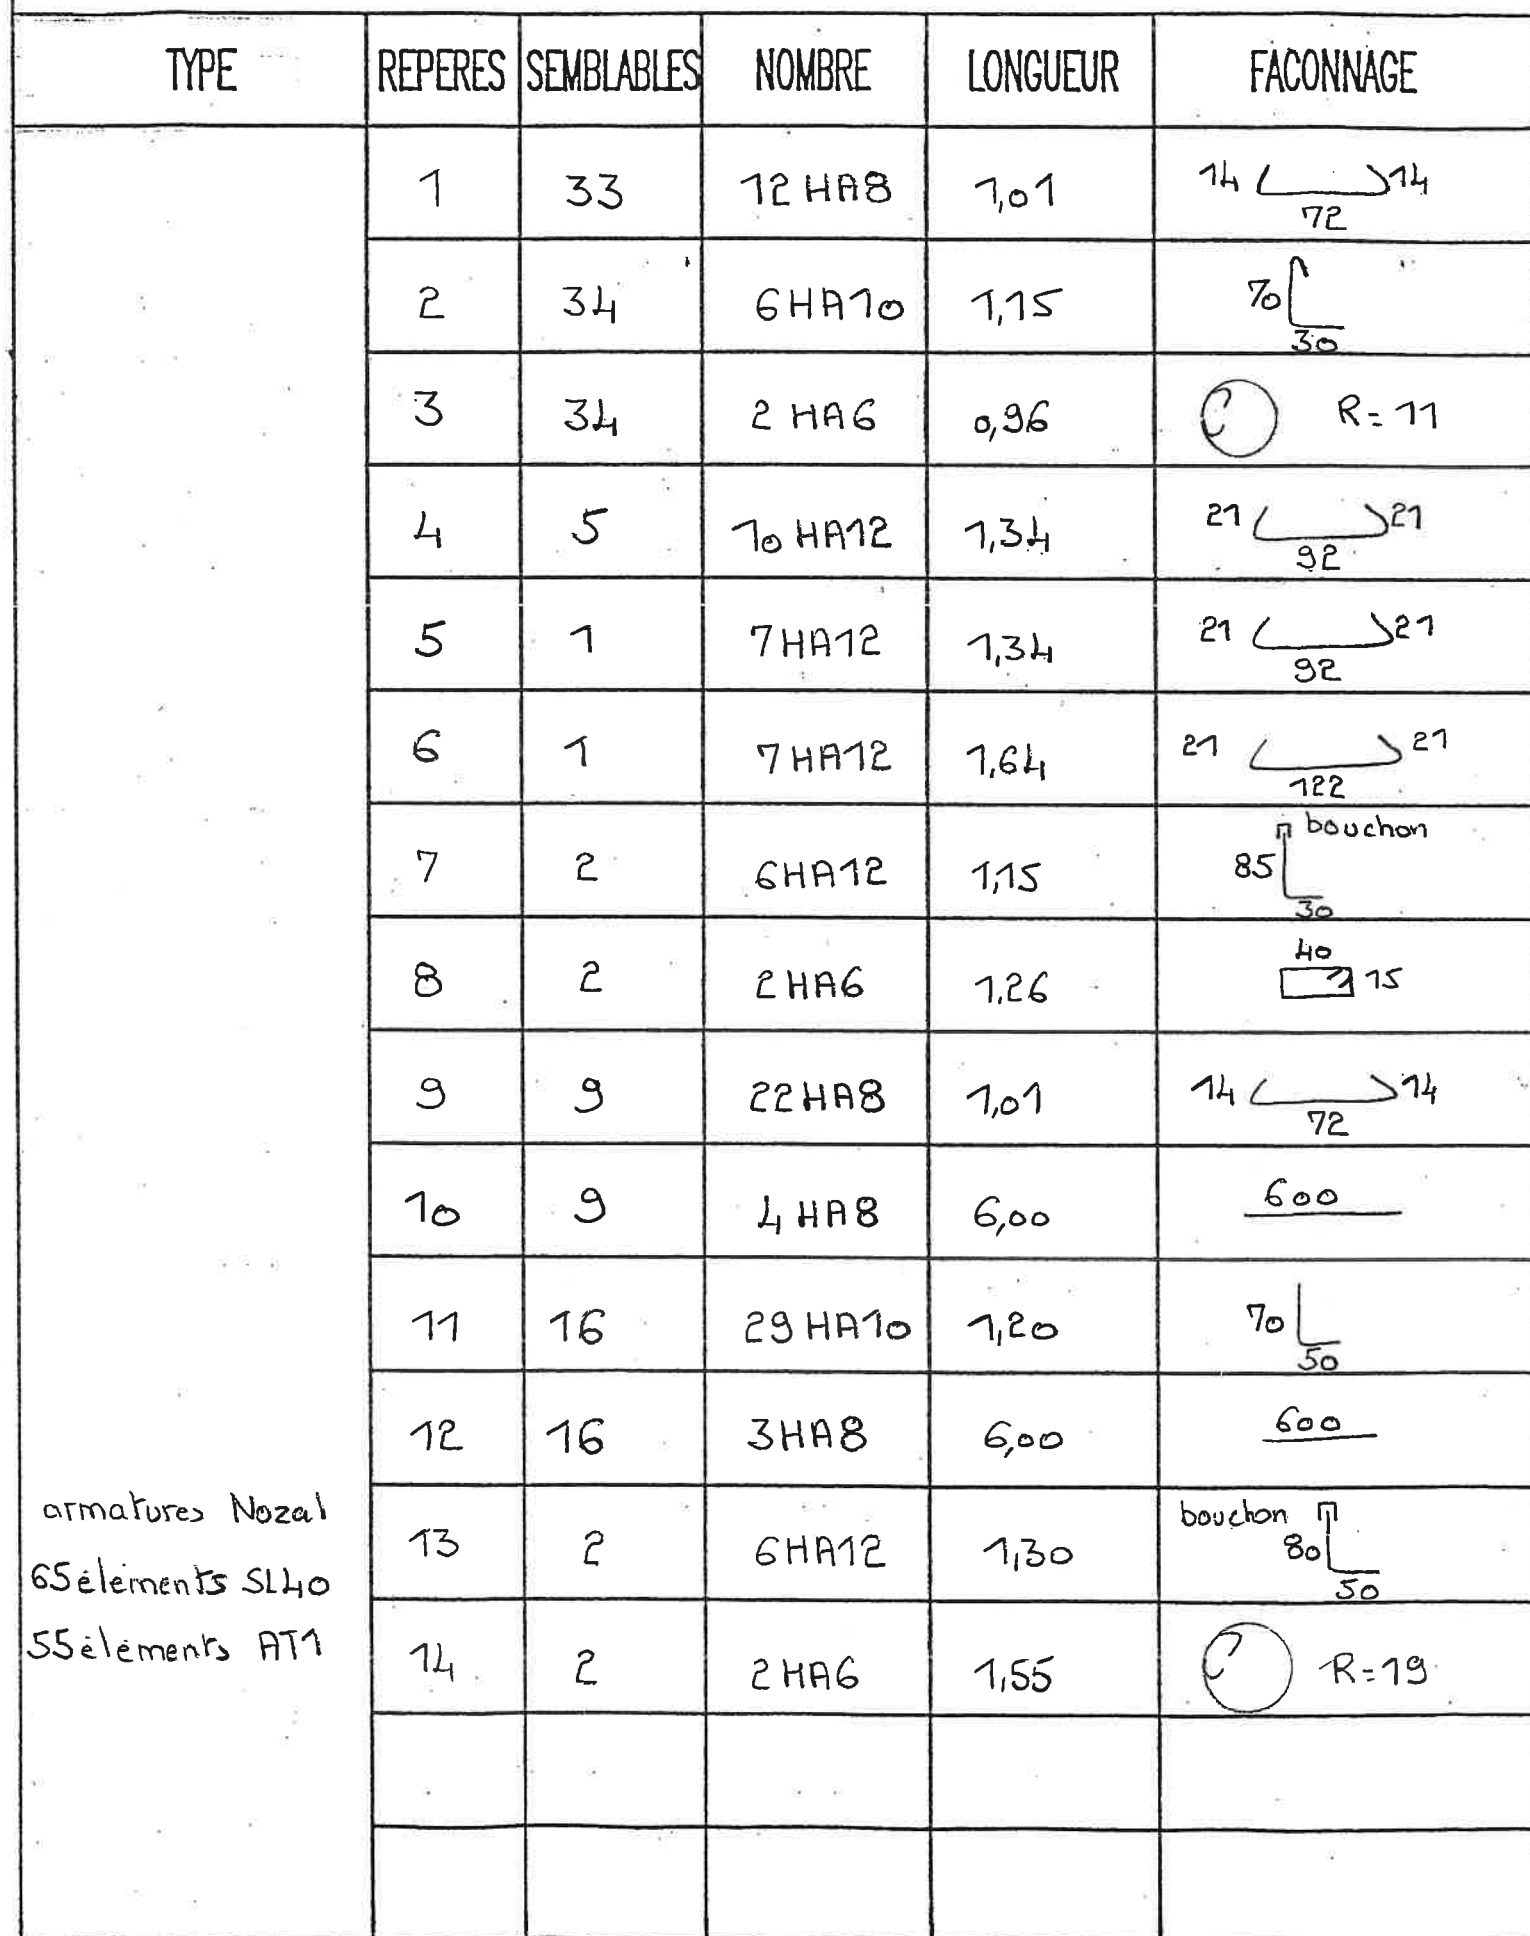 TYPE REPERES SEMBLABLES NOMBRE LONGUEUR FACONNAGE
1 33 12 HA8 1,01 14 72 14
2 34 6 HA10 1,15 70 30
3 34 2 HA6 0,96 R=11
4 5 10 HA12 1,34 21 92 21
5 1 7 HA12 1,34 21 92 21
6 1 7 HA12 1,64 21 122 21
7 2 6 HA12 1,15 bouchon 85 30
8 2 2 HA6 1,26 40 15
9 9 22 HA8 1,01 14 72 14
10 9 4 HA8 6,00 600
11 16 29 HA10 1,20 70 50
12 16 3 HA8 6,00 600
armatures Nozal
65 éléments SL40
55 éléments AT1
13 2 6 HA12 1,30 bouchon 80 50
14 2 2 HA6 1,55 R=19